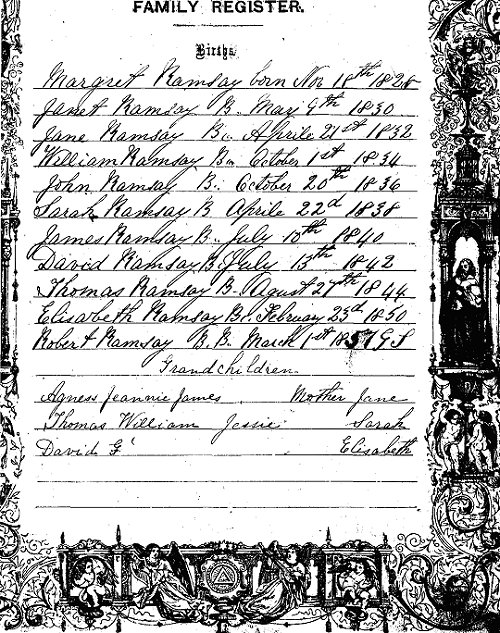 FAMILY REGISTER.
Births
Margret Ramsay born Nov 18th 1828
Janet Ramsay B.. May 9th 1830
Jane Ramsay B.. Aprile 21st 1832
William Ramsay B.. October 1st 1834
John Ramsay B.. October 20th 1836
Sarah Ramsay B Aprile 22d 1838
James Ramsay B.. July 10th 1840
David Ramsay B. July 13th 1842
Thomas Ramsay B. Agust 27th 1844
Elisabeth Ramsay B.. February 23d 1850
Robert Ramsay B. B. March 1st
Grandchildren
Agness Jeannie James Mother Jane
Thomas William Jessie Sarah
David G Elisabeth